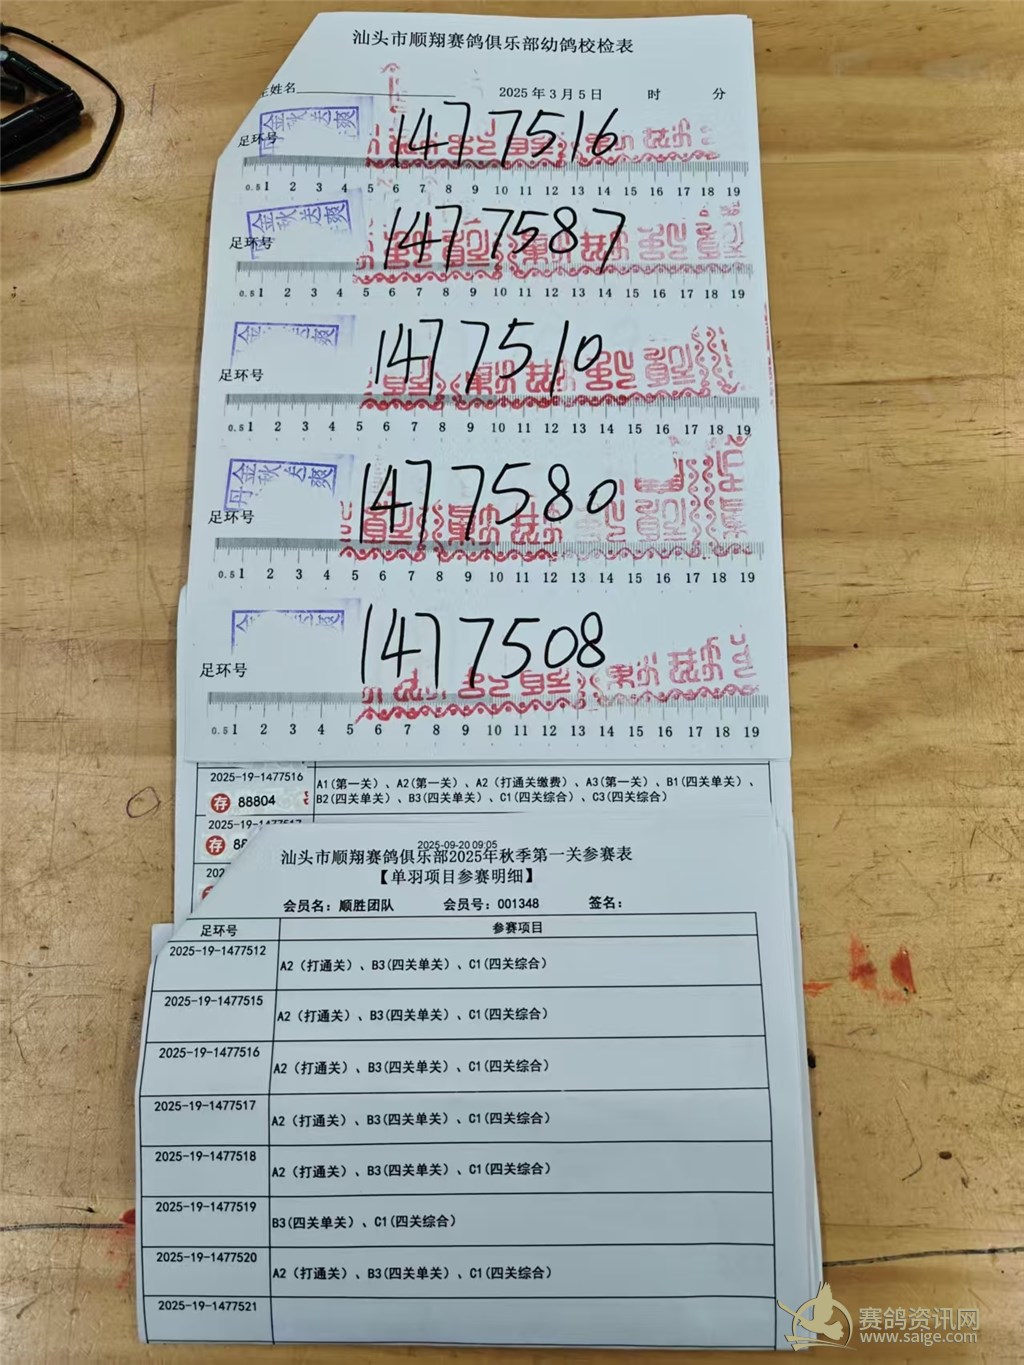 汕头市顺翔赛鸽俱乐部幼鸽校检表
姓名 2025年3月5日 时 分
金秋送爽
足环号 1477516
0.5 1 2 3 4 5 6 7 8 9 10 11 12 13 14 15 16 17 18 19
金秋送爽
足环号 1477587
0.5 1 2 3 4 5 6 7 8 9 10 11 12 13 14 15 16 17 18 19
足环号 1477510
0.5 1 2 3 4 5 6 7 8 9 10 11 12 13 14 15 16 17 18 19
丹金秋送爽
足环号 1477580
0.5 1 2 3 4 5 6 7 8 9 10 11 12 13 14 15 16 17 18 19
足环号 1477508
0.5 1 2 3 4 5 6 7 8 9 10 11 12 13 14 15 16 17 18 19
2025-19-1477516 A1(第一关)、A2(第一关)、A2(打通关缴费)、A3(第一关)、B1(四关单关)、
存 88804 B2(四关单关)、B3(四关单关)、C1(四关综合)、C3(四关综合)
2025-19-1477517
存 88
202
2025-09-20 09:05
汕头市顺翔赛鸽俱乐部2025年秋季第一关参赛表
【单羽项目参赛明细】
会员名：顺胜团队 会员号：001348 签名：
足环号 参赛项目
2025-19-1477512 A2（打通关）、B3(四关单关)、C1(四关综合)
2025-19-1477515 A2（打通关）、B3(四关单关)、C1(四关综合)
2025-19-1477516 A2（打通关）、B3(四关单关)、C1(四关综合)
2025-19-1477517 A2（打通关）、B3(四关单关)、C1(四关综合)
2025-19-1477518 A2（打通关）、B3(四关单关)、C1(四关综合)
2025-19-1477519 B3(四关单关)、C1(四关综合)
2025-19-1477520 A2（打通关）、B3(四关单关)、C1(四关综合)
2025-19-1477521
赛鸽资讯网
www.saige.com